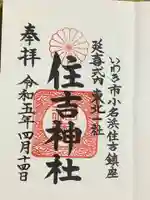 いわき市小名浜住吉鎮座
延喜式内 東北一社
住吉神社
奉拝 令和五年四月十四日